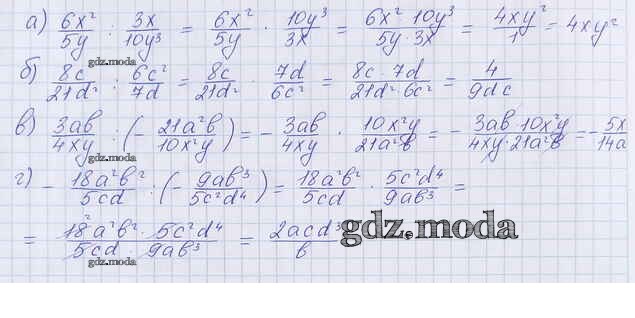 а) 6x²/5y : 3x/10y³ = 6x²/5y · 10y³/3x = 6x²·10y³/5y·3x = 4xy²/1 = 4xy²
gdz.moda
б) 8c/21d² : 6c²/7d = 8c/21d² · 7d/6c² = 8c·7d/21d²·6c² = 4/9dc
gdz.moda
в) 3ab/4xy : (- 21a²b/10x²y) = - 3ab/4xy · 10x²y/21a²b = - 3ab·10x²y/4xy·21a²b = - 5x/14a
gdz.moda
г) - 18a²b²/5cd : (- 9ab³/5c²d⁴) = 18a²b²/5cd · 5c²d⁴/9ab³ =
= 18²a²b²·5c²d⁴/5cd·9ab³ = 2acd³/b
gdz.moda
gdz.moda